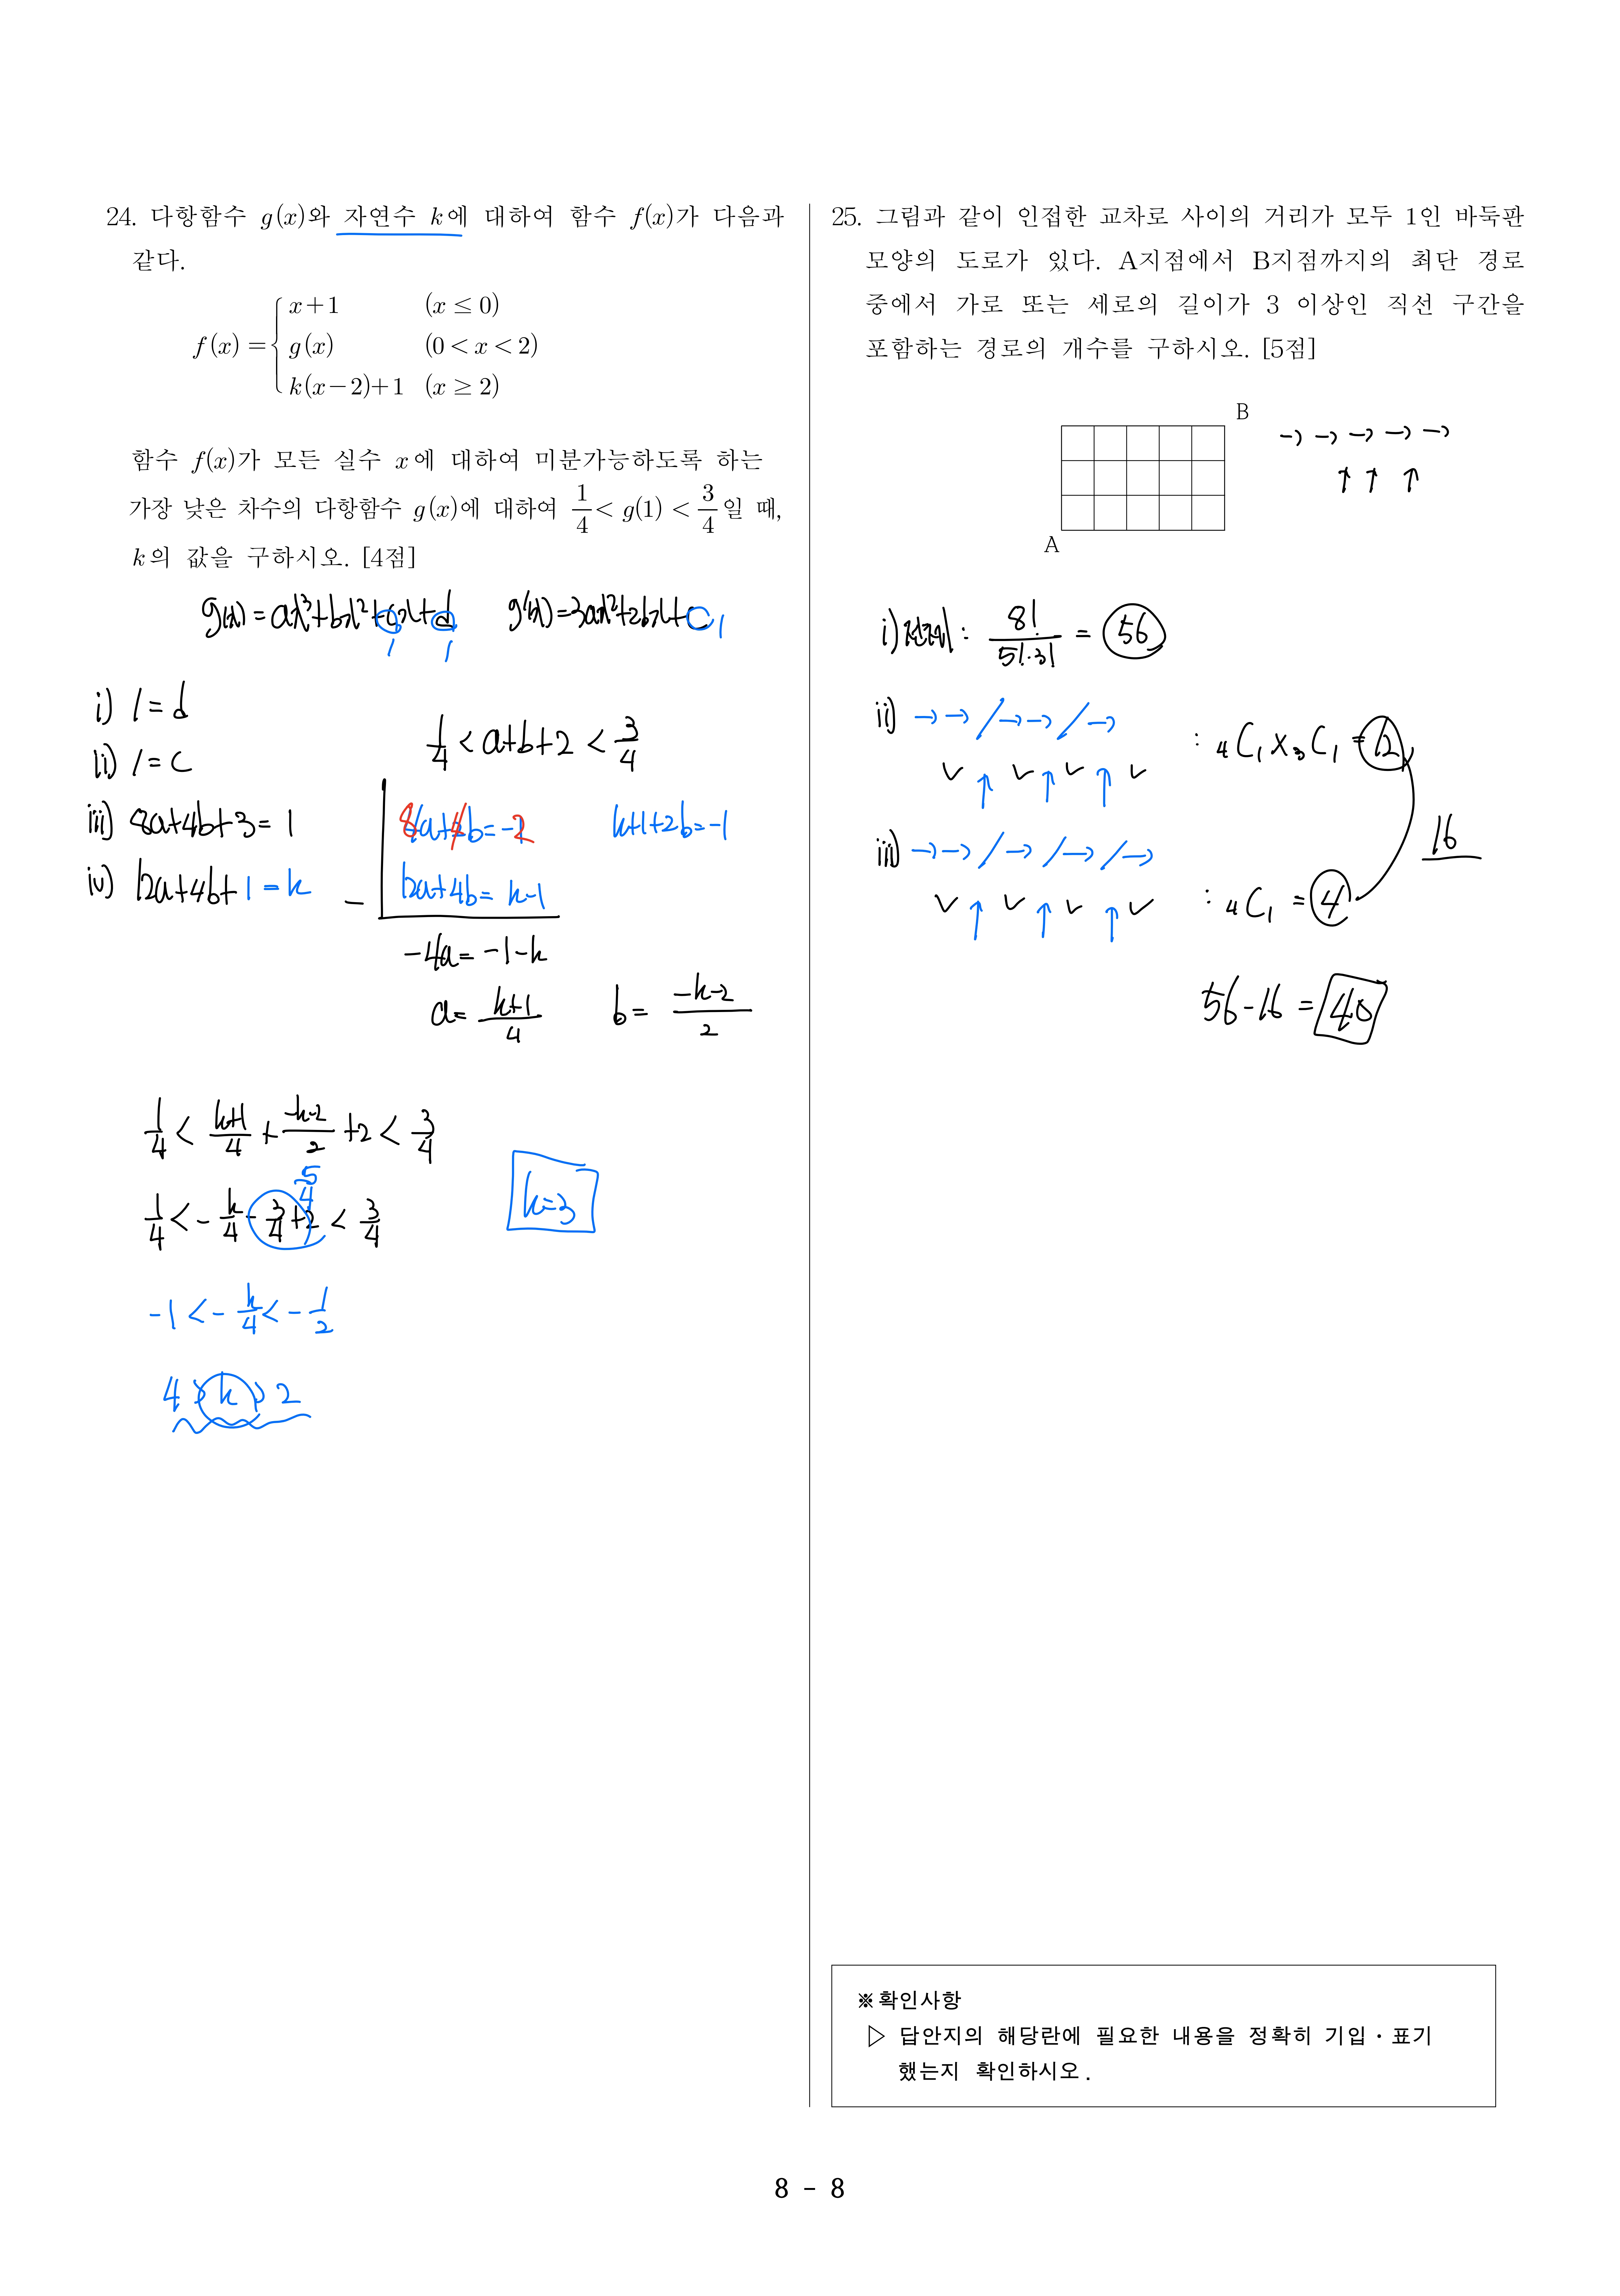 24. 다항함수 g(x)와 자연수 k에 대하여 함수 f(x)가 다음과
같다.
f(x) = { x+1 (x ≤ 0)
g(x) (0 < x < 2)
k(x-2)+1 (x ≥ 2)
함수 f(x)가 모든 실수 x에 대하여 미분가능하도록 하는
가장 낮은 차수의 다항함수 g(x)에 대하여 1/4 < g(1) < 3/4 일 때,
k의 값을 구하시오. [4점]
g(x) = ax³+bx²+cx+d g'(x)=3ax²+2bx+c
1 1 1
i) 1=d
ii) 1=c
iii) 8a+4b+3=1
iv) 12a+4b+1=k
1/4 < a+b+2 < 3/4
8a+4b=-2 k+1+2b=-1
- 12a+4b=k-1
-4a=-1-k
a= (k+1)/4 b= (-k-2)/2 
1/4 < (k+1)/4 + (-k-2)/2 +2 < 3/4
5/4
1/4 < - k/4 - 3/4 +2 < 3/4
k=3
-1 < - k/4 < - 1/2
4 > k > 2
25. 그림과 같이 인접한 교차로 사이의 거리가 모두 1인 바둑판
모양의 도로가 있다. A지점에서 B지점까지의 최단 경로
중에서 가로 또는 세로의 길이가 3 이상인 직선 구간을
포함하는 경로의 개수를 구하시오. [5점]
B
→ → → → →
↑ ↑ ↑
A
i) 전체 : 8!/(5!·3!) = 56
ii) → → / → → / →
∨ ↑ ∨ ↑ ∨ ↑ ∨
: ₄C₁ × ₃C₁ = 12
iii) → → / → / → / →
∨ ↑ ∨ ↑ ∨ ↑ ∨
: ₄C₁ = 4
16
56-16 = 40
※확인사항
▷ 답안지의 해당란에 필요한 내용을 정확히 기입·표기
했는지 확인하시오.
8 - 8